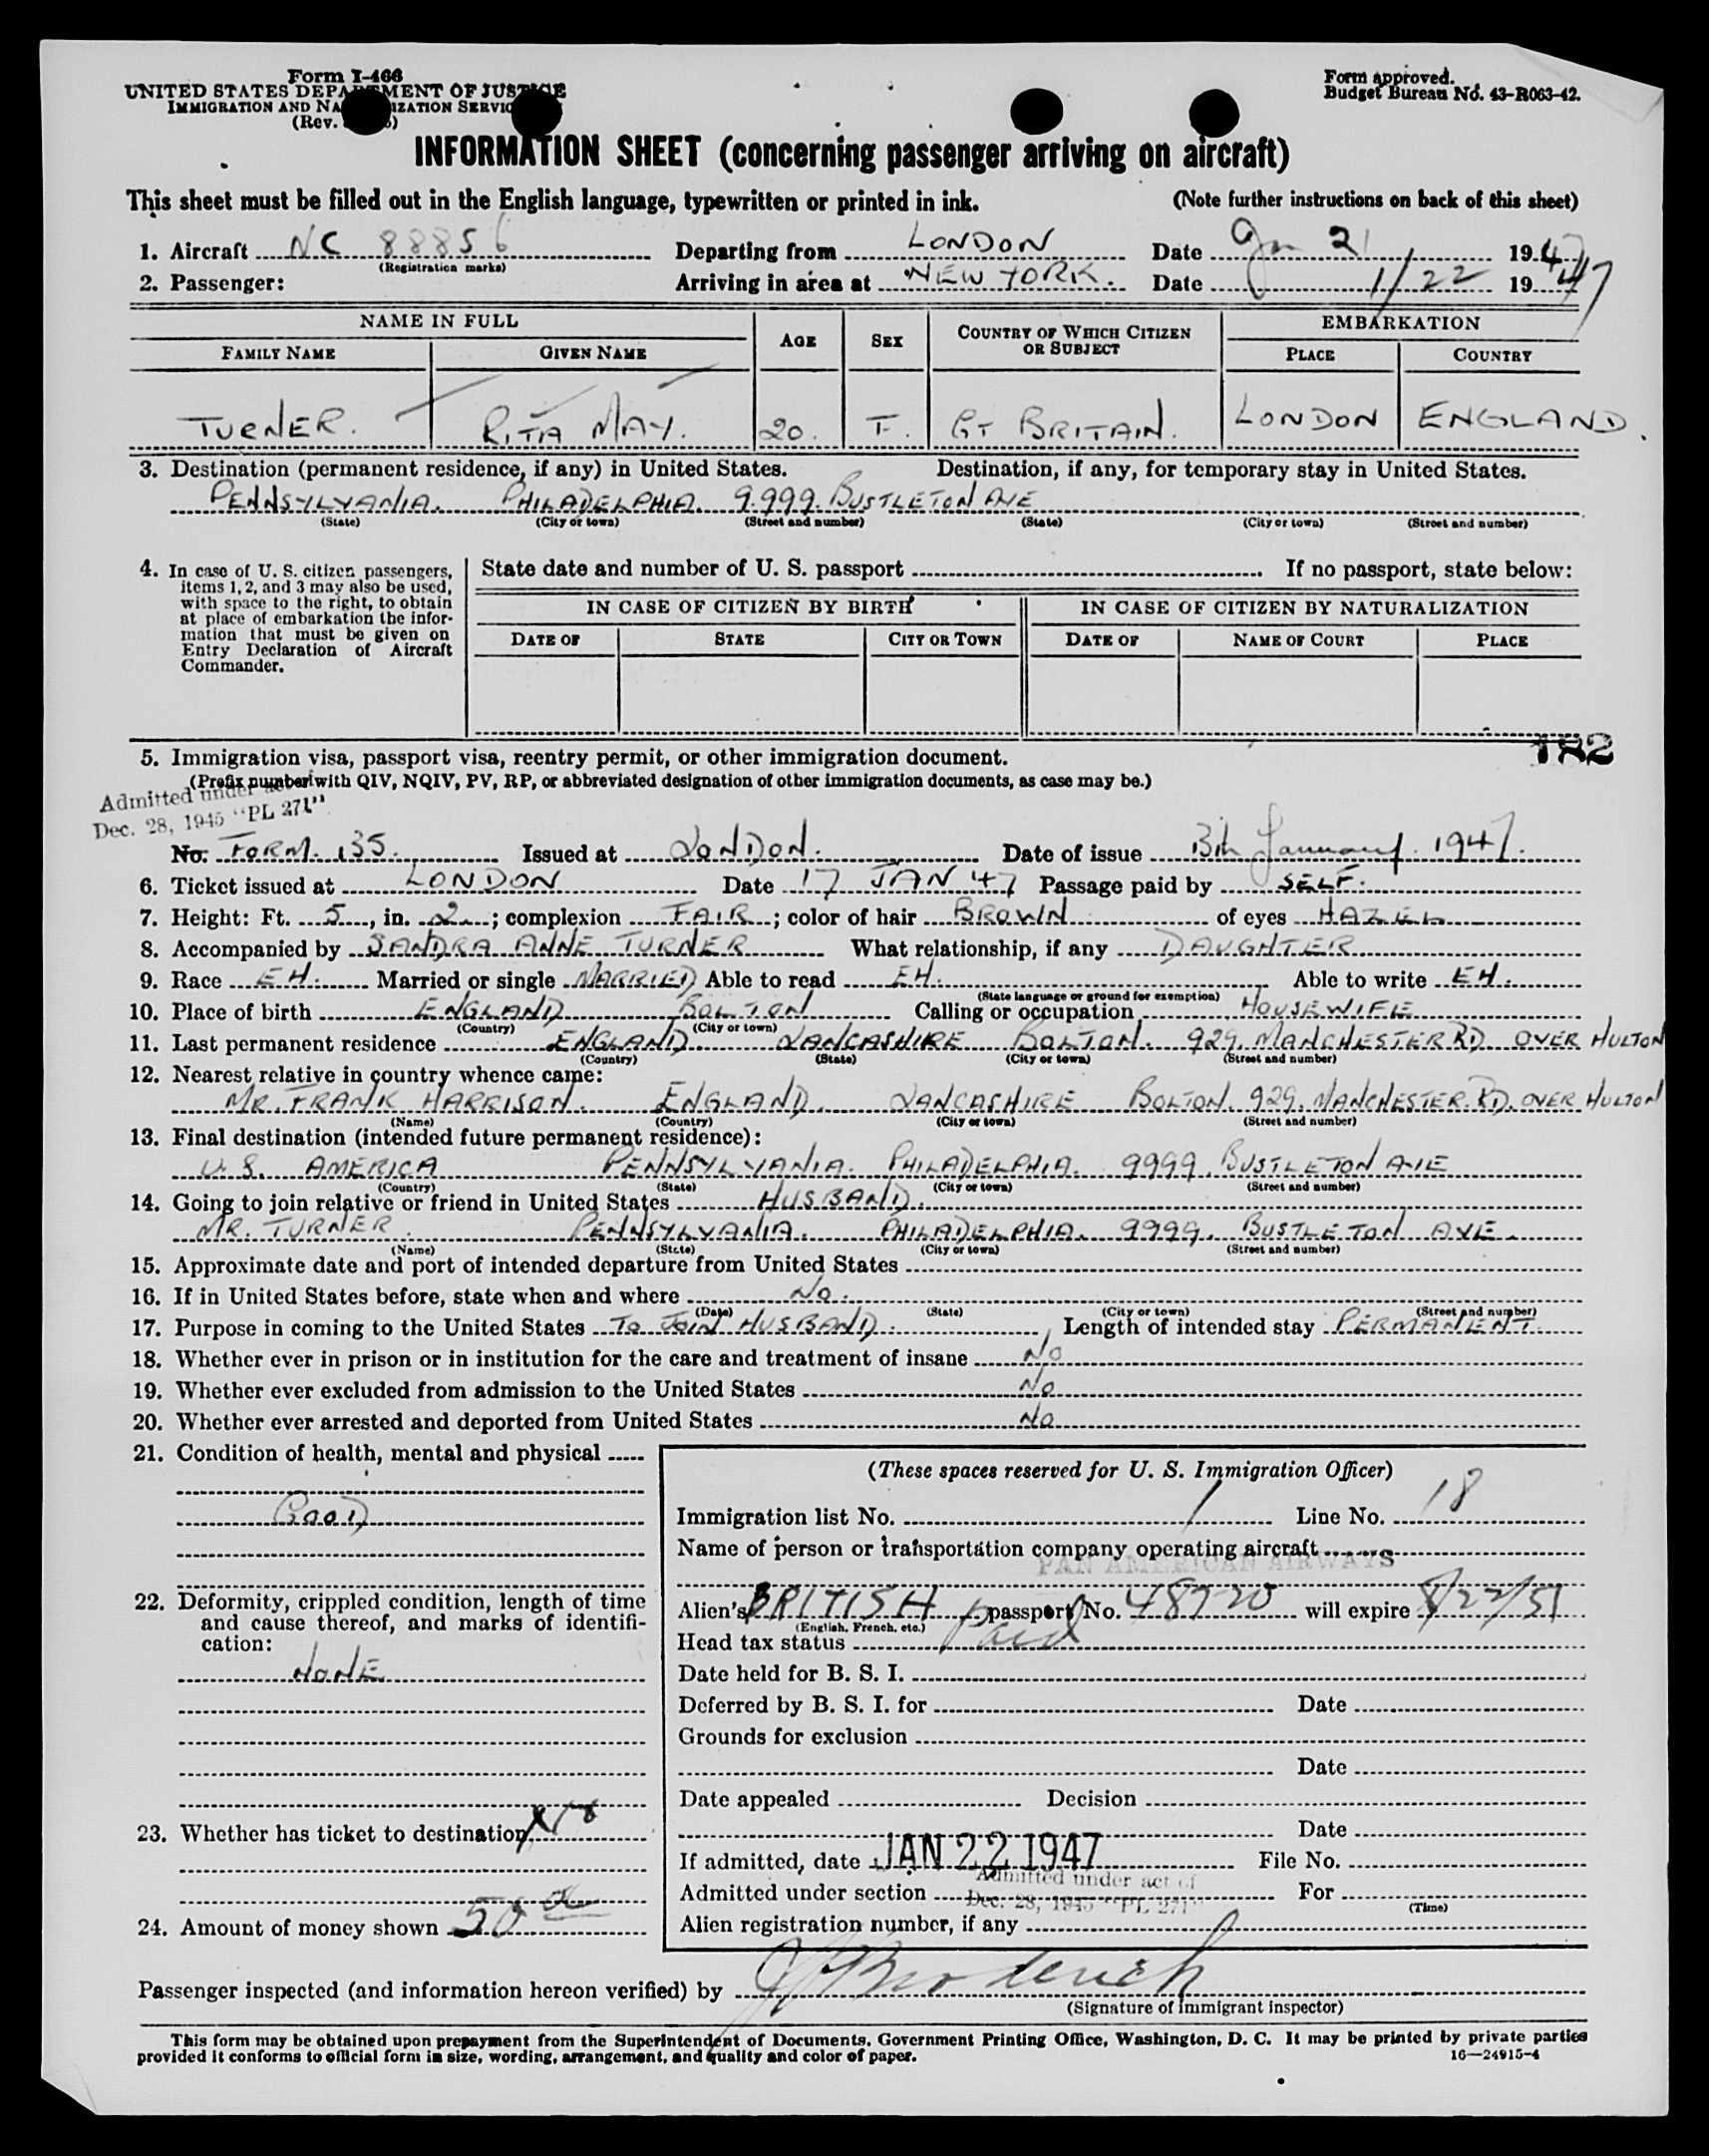 Form I-466
UNITED STATES DEPARTMENT OF JUSTICE
IMMIGRATION AND NATURALIZATION SERVICE
(Rev.
Form approved.
Budget Bureau No. 43-R063-42.
INFORMATION SHEET (concerning passenger arriving on aircraft)
This sheet must be filled out in the English language, typewritten or printed in ink. (Note further instructions on back of this sheet)
1. Aircraft NC 88856 Departing from LONDON Date Jan 21 1947
(Registration marks)
2. Passenger: Arriving in area at NEW YORK. Date 1/22 1947
NAME IN FULL AGE SEX COUNTRY OF WHICH CITIZEN OR SUBJECT EMBARKATION
FAMILY NAME GIVEN NAME PLACE COUNTRY
TURNER. RITA MAY. 20. F. GT BRITAIN. LONDON ENGLAND.
3. Destination (permanent residence, if any) in United States. Destination, if any, for temporary stay in United States.
PENNSYLVANIA. PHILADELPHIA. 9.999. BUSTLETON AVE
(State) (City or town) (Street and number) (State) (City or town) (Street and number)
4. In case of U. S. citizen passengers, items 1, 2, and 3 may also be used, with space to the right, to obtain at place of embarkation the information that must be given on Entry Declaration of Aircraft Commander.
State date and number of U. S. passport If no passport, state below:
IN CASE OF CITIZEN BY BIRTH IN CASE OF CITIZEN BY NATURALIZATION
DATE OF STATE CITY OR TOWN DATE OF NAME OF COURT PLACE
182
5. Immigration visa, passport visa, reentry permit, or other immigration document.
(Prefix number with QIV, NQIV, PV, RP, or abbreviated designation of other immigration documents, as case may be.)
Admitted under act
Dec. 28, 1945 "PL 271"
No. FORM. 135. Issued at LONDON. Date of issue 13th January. 1947.
6. Ticket issued at LONDON Date 17 JAN 47 Passage paid by SELF.
7. Height: Ft. 5, in. 2; complexion FAIR; color of hair BROWN of eyes HAZEL
8. Accompanied by SANDRA ANNE TURNER What relationship, if any DAUGHTER
9. Race EH. Married or single MARRIED Able to read EH. Able to write EH.
(State language or ground for exemption)
10. Place of birth ENGLAND BOLTON Calling or occupation HOUSEWIFE
(Country) (City or town)
11. Last permanent residence ENGLAND LANCASHIRE BOLTON. 929. MANCHESTER RD OVER HULTON
(Country) (State) (City or town) (Street and number)
12. Nearest relative in country whence came:
MR. FRANK HARRISON. ENGLAND. LANCASHIRE BOLTON. 929. MANCHESTER. RD. OVER HULTON
(Name) (Country) (City or town) (Street and number)
13. Final destination (intended future permanent residence):
U.S. AMERICA PENNSYLVANIA. PHILADELPHIA. 9999. BUSTLETON AVE
(Country) (State) (City or town) (Street and number)
14. Going to join relative or friend in United States HUSBAND.
MR. TURNER. PENNSYLVANIA. PHILADELPHIA. 9999. BUSTLETON AVE.
(Name) (State) (City or town) (Street and number)
15. Approximate date and port of intended departure from United States
16. If in United States before, state when and where No.
(Date) (State) (City or town) (Street and number)
17. Purpose in coming to the United States TO JOIN HUSBAND. Length of intended stay PERMANENT.
18. Whether ever in prison or in institution for the care and treatment of insane No
19. Whether ever excluded from admission to the United States No
20. Whether ever arrested and deported from United States No
21. Condition of health, mental and physical
GOOD
22. Deformity, crippled condition, length of time and cause thereof, and marks of identification:
NONE
23. Whether has ticket to destination
24. Amount of money shown 50
(These spaces reserved for U. S. Immigration Officer)
Immigration list No. 1 Line No. 18
Name of person or transportation company operating aircraft
PAN AMERICAN AIRWAYS
Alien's BRITISH passport No. 48720 will expire 8/22/51
(English, French, etc.)
Head tax status Paid
Date held for B. S. I.
Deferred by B. S. I. for Date
Grounds for exclusion
Date
Date appealed Decision
Date
If admitted, date JAN 22 1947 File No.
Admitted under act of
Admitted under section Dec. 28, 1945 "PL 271" For
(Time)
Alien registration number, if any
Passenger inspected (and information hereon verified) by
(Signature of immigrant inspector)
This form may be obtained upon prepayment from the Superintendent of Documents, Government Printing Office, Washington, D. C. It may be printed by private parties
provided it conforms to official form in size, wording, arrangement, and quality and color of paper. 16—24915-4